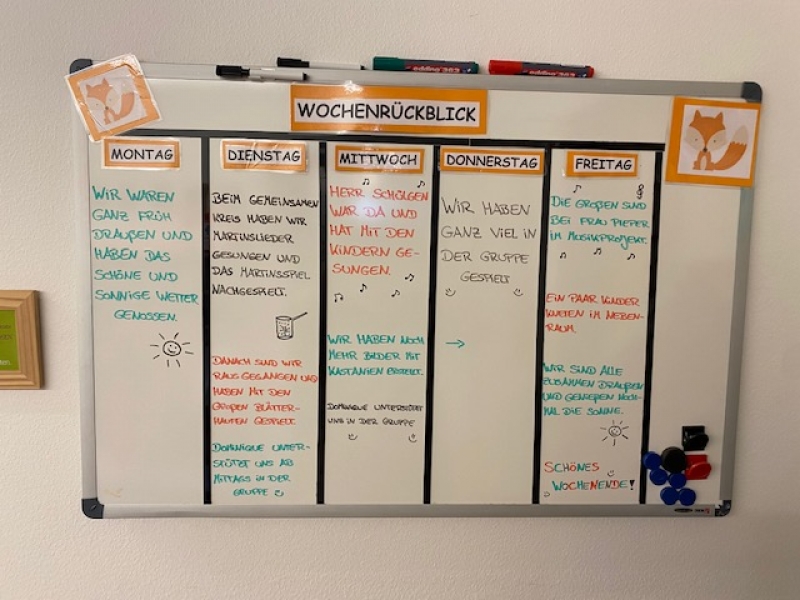 edding 363
edding 363
WOCHENRÜCKBLICK
MONTAG
WIR WAREN
GANZ FRÜH
DRAUßEN UND
HABEN DAS
SCHÖNE UND
SONNIGE WETTER
GENOSSEN.
DIENSTAG
BEIM GEMEINSAMEN
KREIS HABEN WIR
MARTINSLIEDER
GESUNGEN UND
DAS MARTINSSPIEL
NACHGESPIELT.
DANACH SIND WIR
RAUS GEGANGEN UND
HABEN MIT DEN
GROßEN BLÄTTER-
HAUFEN GESPIELT.
DOMINIQUE UNTER-
STÜTZT UNS AB
MITTAGS IN DER
GRUPPE
MITTWOCH
HERR SCHÜLGEN
WAR DA UND
HAT MIT DEN
KINDERN GE-
SUNGEN.
WIR HABEN NOCH
MEHR BILDER MIT
KASTANIEN ERSTELLT.
DOMINIQUE UNTERSTÜTZT
UNS IN DER GRUPPE
DONNERSTAG
WIR HABEN
GANZ VIEL IN
DER GRUPPE
GESPIELT
→
FREITAG
DIE GROßEN SIND
BEI FRAU PIEPER
IM MUSIKPROJEKT.
EIN PAAR KINDER
KNETEN IM NEBEN-
RAUM.
WIR SIND ALLE
ZUSAMMEN DRAUßEN
UND GENIEßEN NOCH-
MAL DIE SONNE.
SCHÖNES
WOCHENENDE!